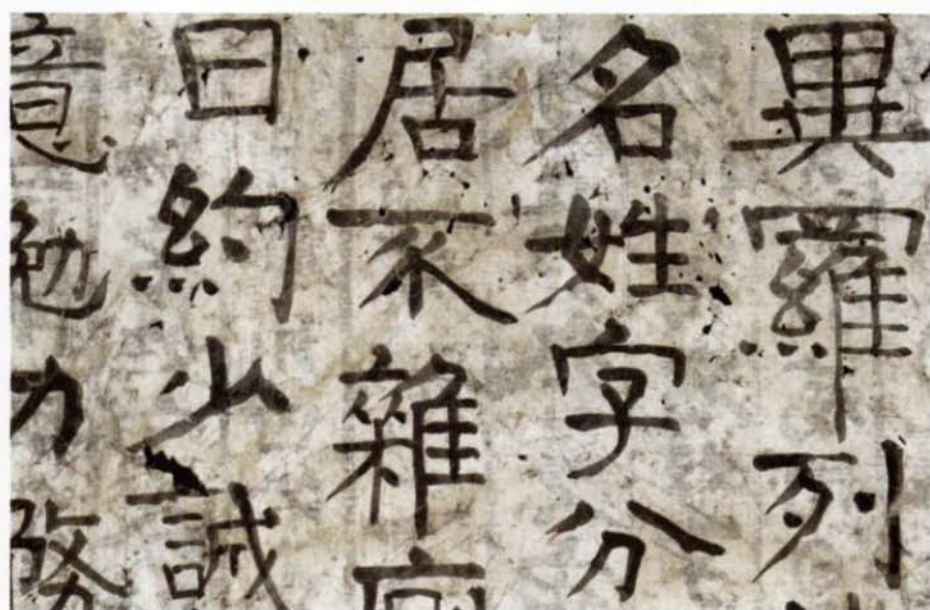 異羅列
名姓字分
居不雜
日約少誠
意勉力務